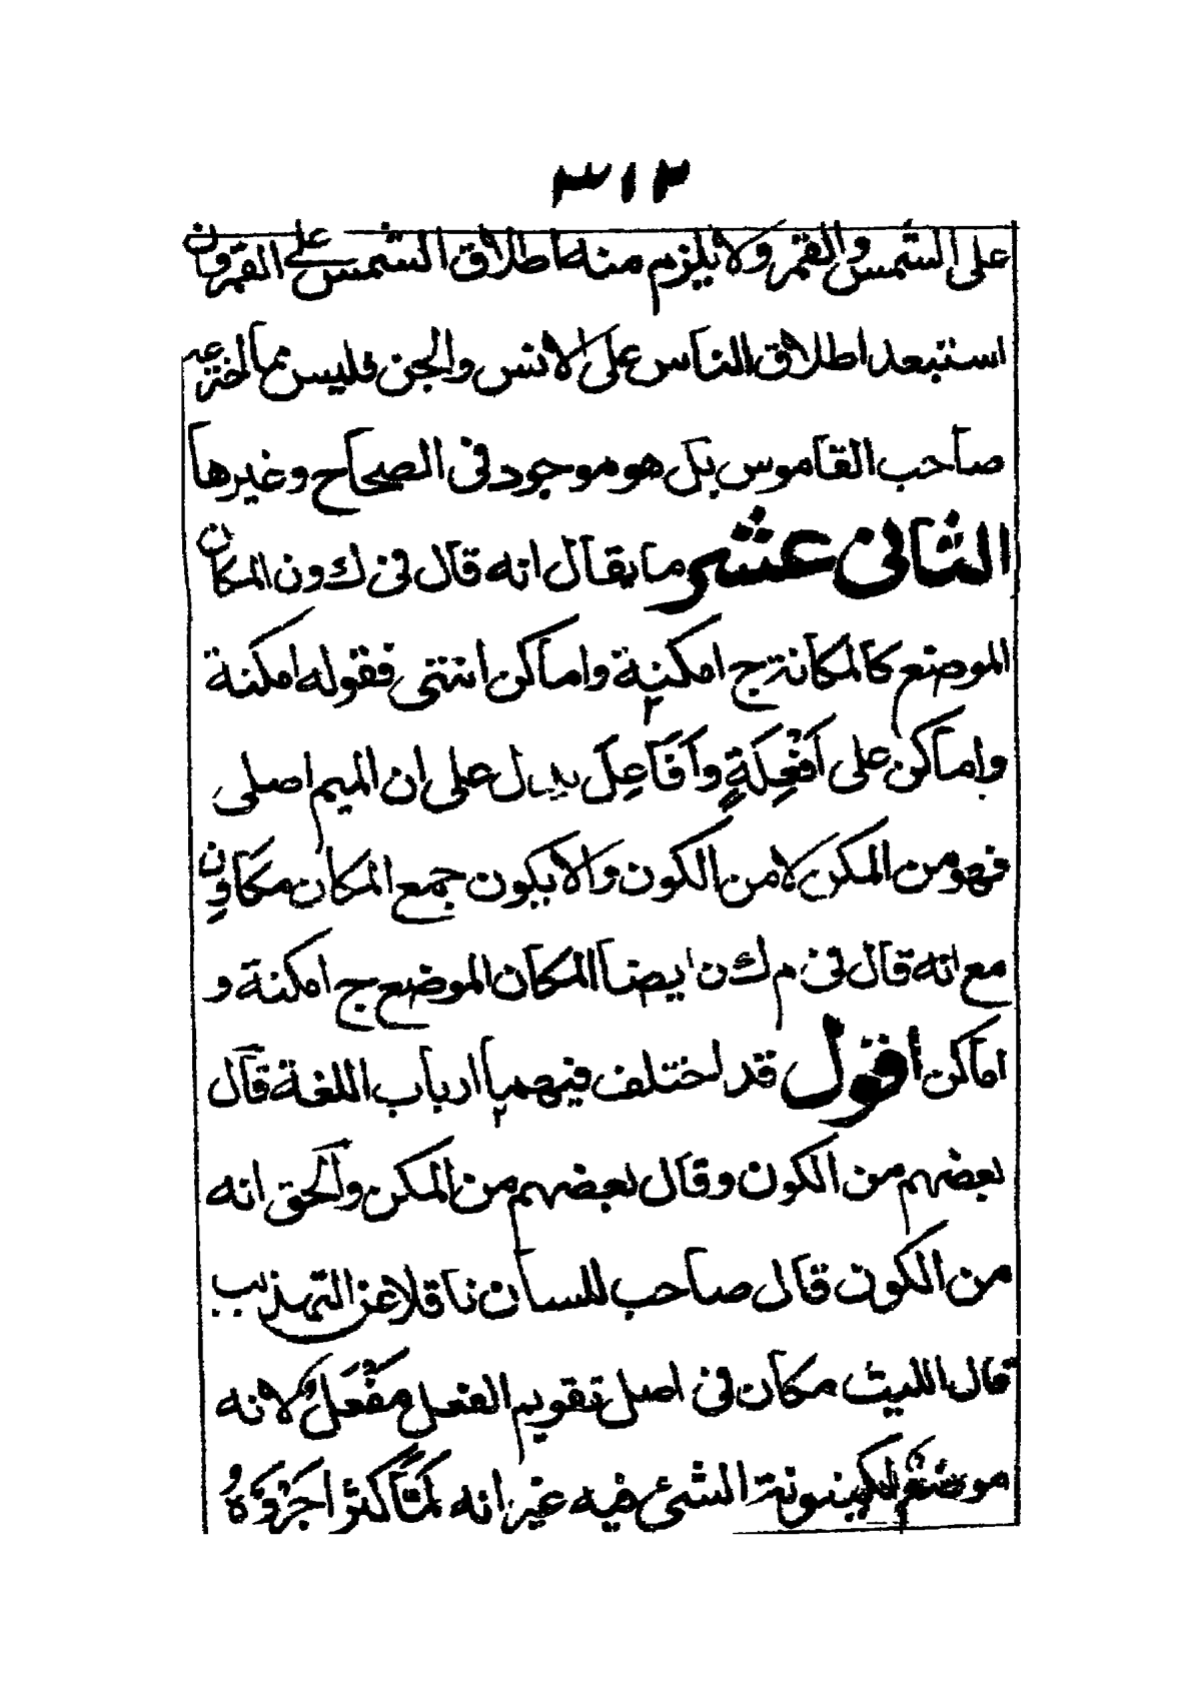 ٣١٢
على الشمس والقمر ولا يلزم منه اطلاق الشمس على القمر وان
استبعد اطلاق الناس على الانس والجن فليس مما اخترعه
صاحب القاموس بل هو موجود في الصحاح وغيرها
الثاني عشر ما يقال انه قال في ك ون المكان
الموضع كالمكانة ج امكنة واماكن انتهى فقوله امكنة
واماكن على أَفْعِلَةٍ وأَفَاعِلَ يدل على ان الميم اصلي
فهو من المكن لا من الكون والا يكون جمع المكان مكاوِن
مع انه قال في م ك ن ايضا المكان الموضع ج امكنة و
اماكن اقول قد اختلف فيهما ارباب اللغة قال
بعضهم من الكون وقال بعضهم من المكن والحق انه
من الكون قال صاحب اللسان ناقلا عن التهذيب
قال الليث مكان في اصل تقويم الفعل مَفْعَلٌ لانه
موضع لكينونة الشئ فيه غير انه لمّا كثر اَجْرَوْهُ